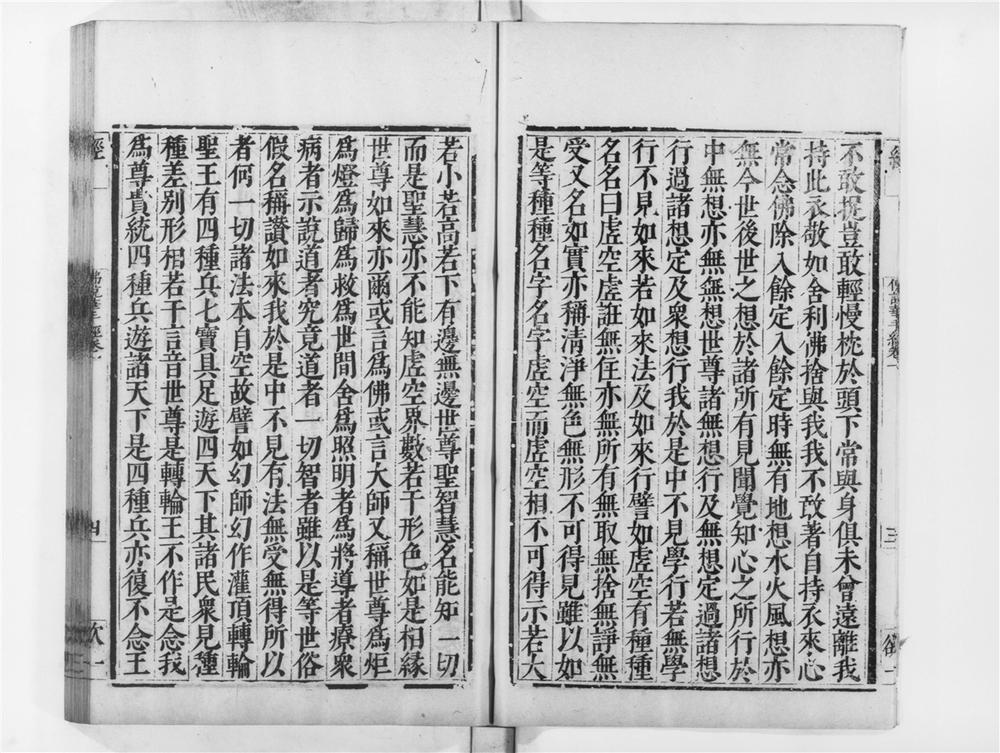 不敢捉豈敢輕慢枕於頭下常與身俱未曾遠離我
持此衣敬如舍利佛捨與我我不敢著自持衣來心
常念佛除入餘定入餘定時無有地想水火風想亦
無今世後世之想於諸所有見聞覺知心之所行於
中無想亦無無想世尊諸無想行及無想定過諸想
行過諸想定及衆想行我於是中不見學行若無學
行不見如來若如來法及如來行譬如虛空有種種
名名曰虛空虛誑無住亦無所有無取無捨無諍無
受又名如實亦稱清淨無色無形不可得見雖以如
是等種種名字名字虛空而虛空相不可得示若大
若小若高若下有邊無邊世尊聖智慧名能知一切
而是聖慧亦不能知虛空界數若干形色如是相緣
世尊如來亦爾或言爲佛或言大師又稱世尊爲炬
爲燈爲歸爲救爲世間舍爲照明者爲將導者療衆
病者示說道者究竟道者一切智者雖以是等世俗
假名稱讚如來我於是中不見有法無受無得所以
者何一切諸法本自空故譬如幻師幻作灌頂轉輪
聖王有四種兵七寶具足遊四天下其諸民衆見種
種差別形相若干言音世尊是轉輪王不作是念我
爲尊貴統四種兵遊諸天下是四種兵亦復不念王
經
四